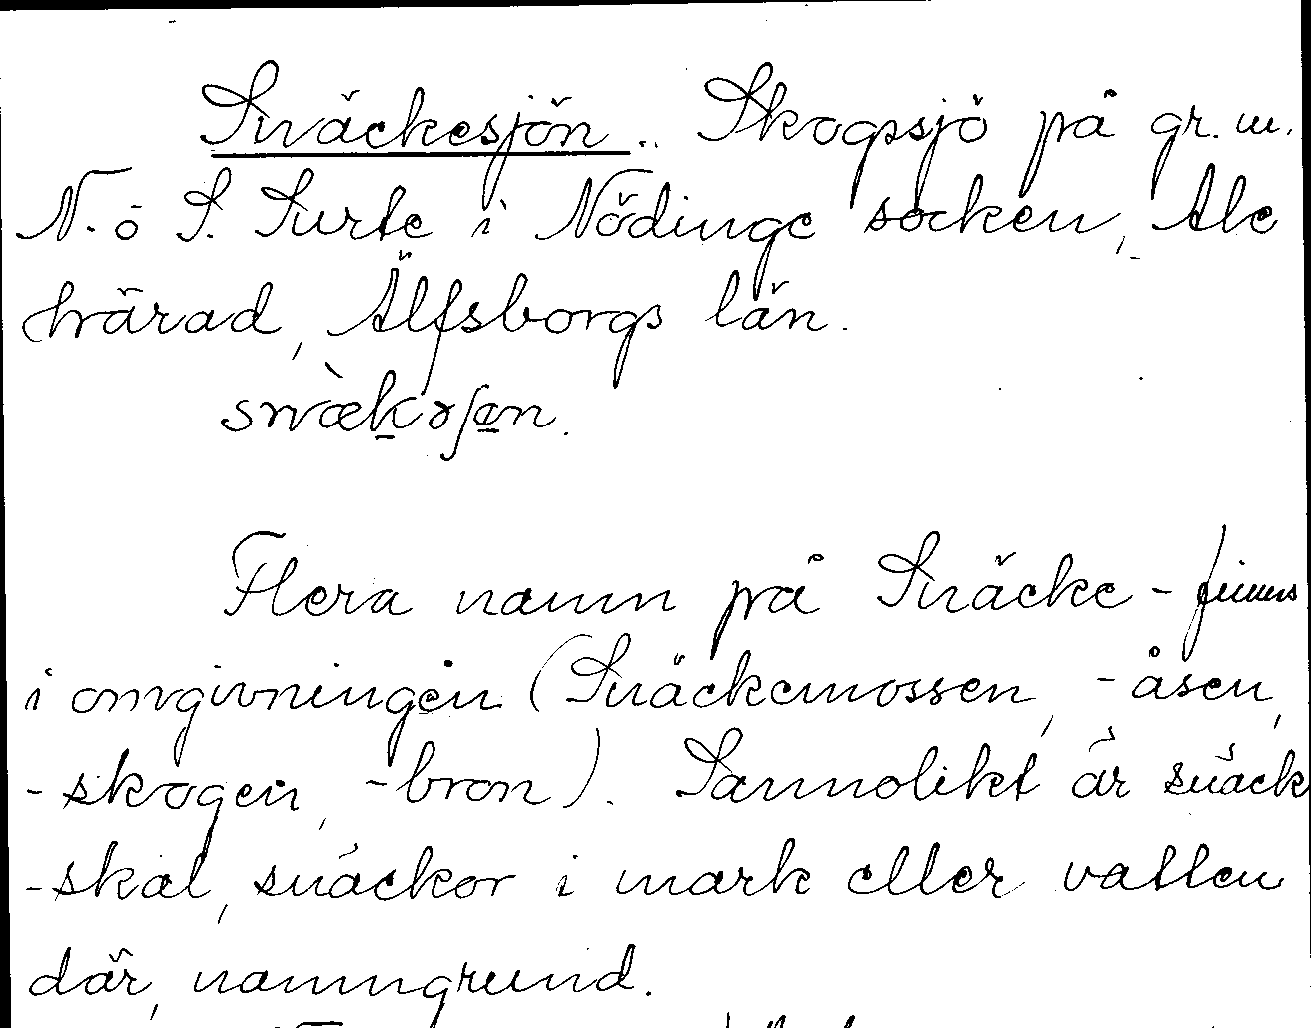 Snäckesjön.. Skogssjö på gr. m.
N. o S. Surte i Nödinge socken, Ale
härad, Älfsborgs län.
snɶ̀kəʃɶn.
Flera namn på Snäcke- finns
i omgivningen (Snäckemossen, -åsen,
-skogen, -bron). Sannolikt är snäck
-skal, snäckor i mark eller vatten
där, namngrund.